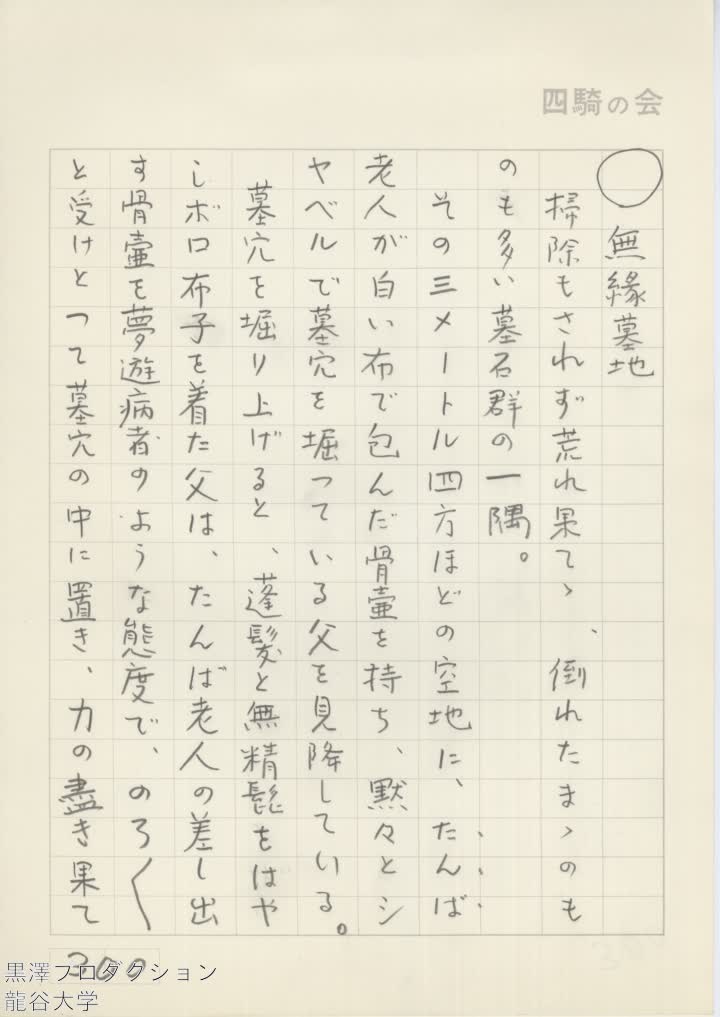 四騎の会
○ 無縁墓地
掃除もされず荒れ果てゝ、倒れたまゝのも
のも多い墓石群の一隅。
その三メートル四方ほどの空地に、たんば
老人が白い布で包んだ骨壷を持ち、黙々とシ
ャベルで墓穴を堀つている父を見降している。
墓穴を堀り上げると、蓬髪と無精髭をはや
しボロ布子を着た父は、たんば老人の差し出
す骨壷を夢遊病者のような態度で、のろ〱
と受けとつて墓穴の中に置き、力の盡き果て
300
黒澤プロダクション
龍谷大学